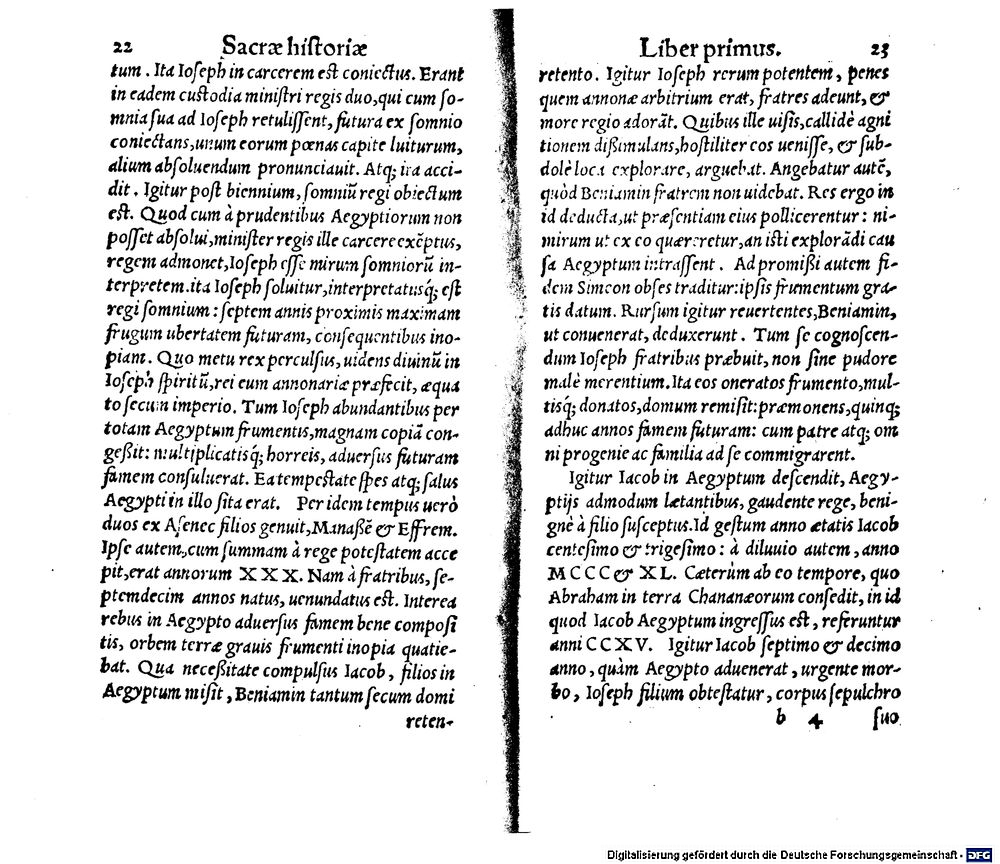 22 Sacræ historiæ
tum. Ita Ioseph in carcerem est coniectus. Erant
in eadem custodia ministri regis duo, qui cum so-
mnia sua ad Ioseph retulissent, futura ex somnio
coniectans, unum eorum pœnas capite luiturum,
alium absoluendum pronunciauit. Atq; ita acci-
dit. Igitur post biennium, somniũ regi obiectum
est. Quod cum à prudentibus Aegyptiorum non
posset absolui, minister regis ille carcere exẽptus,
regem admonet, Ioseph esse mirum somniorũ in-
terpretem. ita Ioseph soluitur, interpretatusq; est
regi somnium: septem annis proximis maximam
frugum ubertatem futuram, consequentibus ino-
piam. Quo metu rex perculsus, uidens diuinũ in
Ioseph spiritũ, rei eum annonariæ præfecit, æqua
to secum imperio. Tum Ioseph abundantibus per
totam Aegyptum frumentis, magnam copiã con-
geßit: multiplicatisq; horreis, aduersus futuram
famem consuluerat. Ea tempestate spes atq; salus
Aegypti in illo sita erat. Per idem tempus uerò
duos ex Asenec filios genuit, Manaßẽ & Effrem.
Ipse autem, cum summam à rege potestatem acce
pit, erat annorum XXX. Nam à fratribus, se-
ptemdecim annos natus, uenundatus est. Interea
rebus in Aegypto aduersus famem bene composi
tis, orbem terræ grauis frumenti inopia quatie-
bat. Qua neceßitate compulsus Iacob, filios in
Aegyptum misit, Beniamin tantum secum domi
reten-
Liber primus. 23
retento. Igitur Ioseph rerum potentem, penes
quem annonæ arbitrium erat, fratres adeunt, &
more regio adorãt. Quibus ille uisis, callidè agni
tionem dißimulans, hostiliter eos uenisse, & sub-
dolè loca explorare, arguebat. Angebatur autẽ,
quòd Beniamin fratrem non uidebat. Res ergo in
id deducta, ut præsentiam eius pollicerentur: ni-
mirum ut ex eo quæreretur, an isti explorãdi cau
sa Aegyptum intrassent. Ad promißi autem fi-
dem Simeon obses traditur: ipsis frumentum gra-
tis datum. Rursum igitur reuertentes, Beniamin,
ut conuenerat, deduxerunt. Tum se cognoscen-
dum Ioseph fratribus præbuit, non sine pudore
malè merentium. Ita eos oneratos frumento, mul-
tisq; donatos, domum remisit: præmonens, quinq;
adhuc annos famem futuram: cum patre atq; om
ni progenie ac familia ad se commigrarent.
Igitur Iacob in Aegyptum descendit, Aegy-
ptijs admodum lætantibus, gaudente rege, beni-
gnè à filio susceptus. Id gestum anno ætatis Iacob
centesimo & trigesimo: à diluuio autem, anno
MCCC & XL. Cæterùm ab eo tempore, quo
Abraham in terra Chananæorum consedit, in id
quod Iacob Aegyptum ingressus est, referuntur
anni CCXV. Igitur Iacob septimo & decimo
anno, quàm Aegypto aduenerat, urgente mor-
bo, Ioseph filium obtestatur, corpus sepulchro
b 4 suo
Digitalisierung gefördert durch die Deutsche Forschungsgemeinschaft - DFG